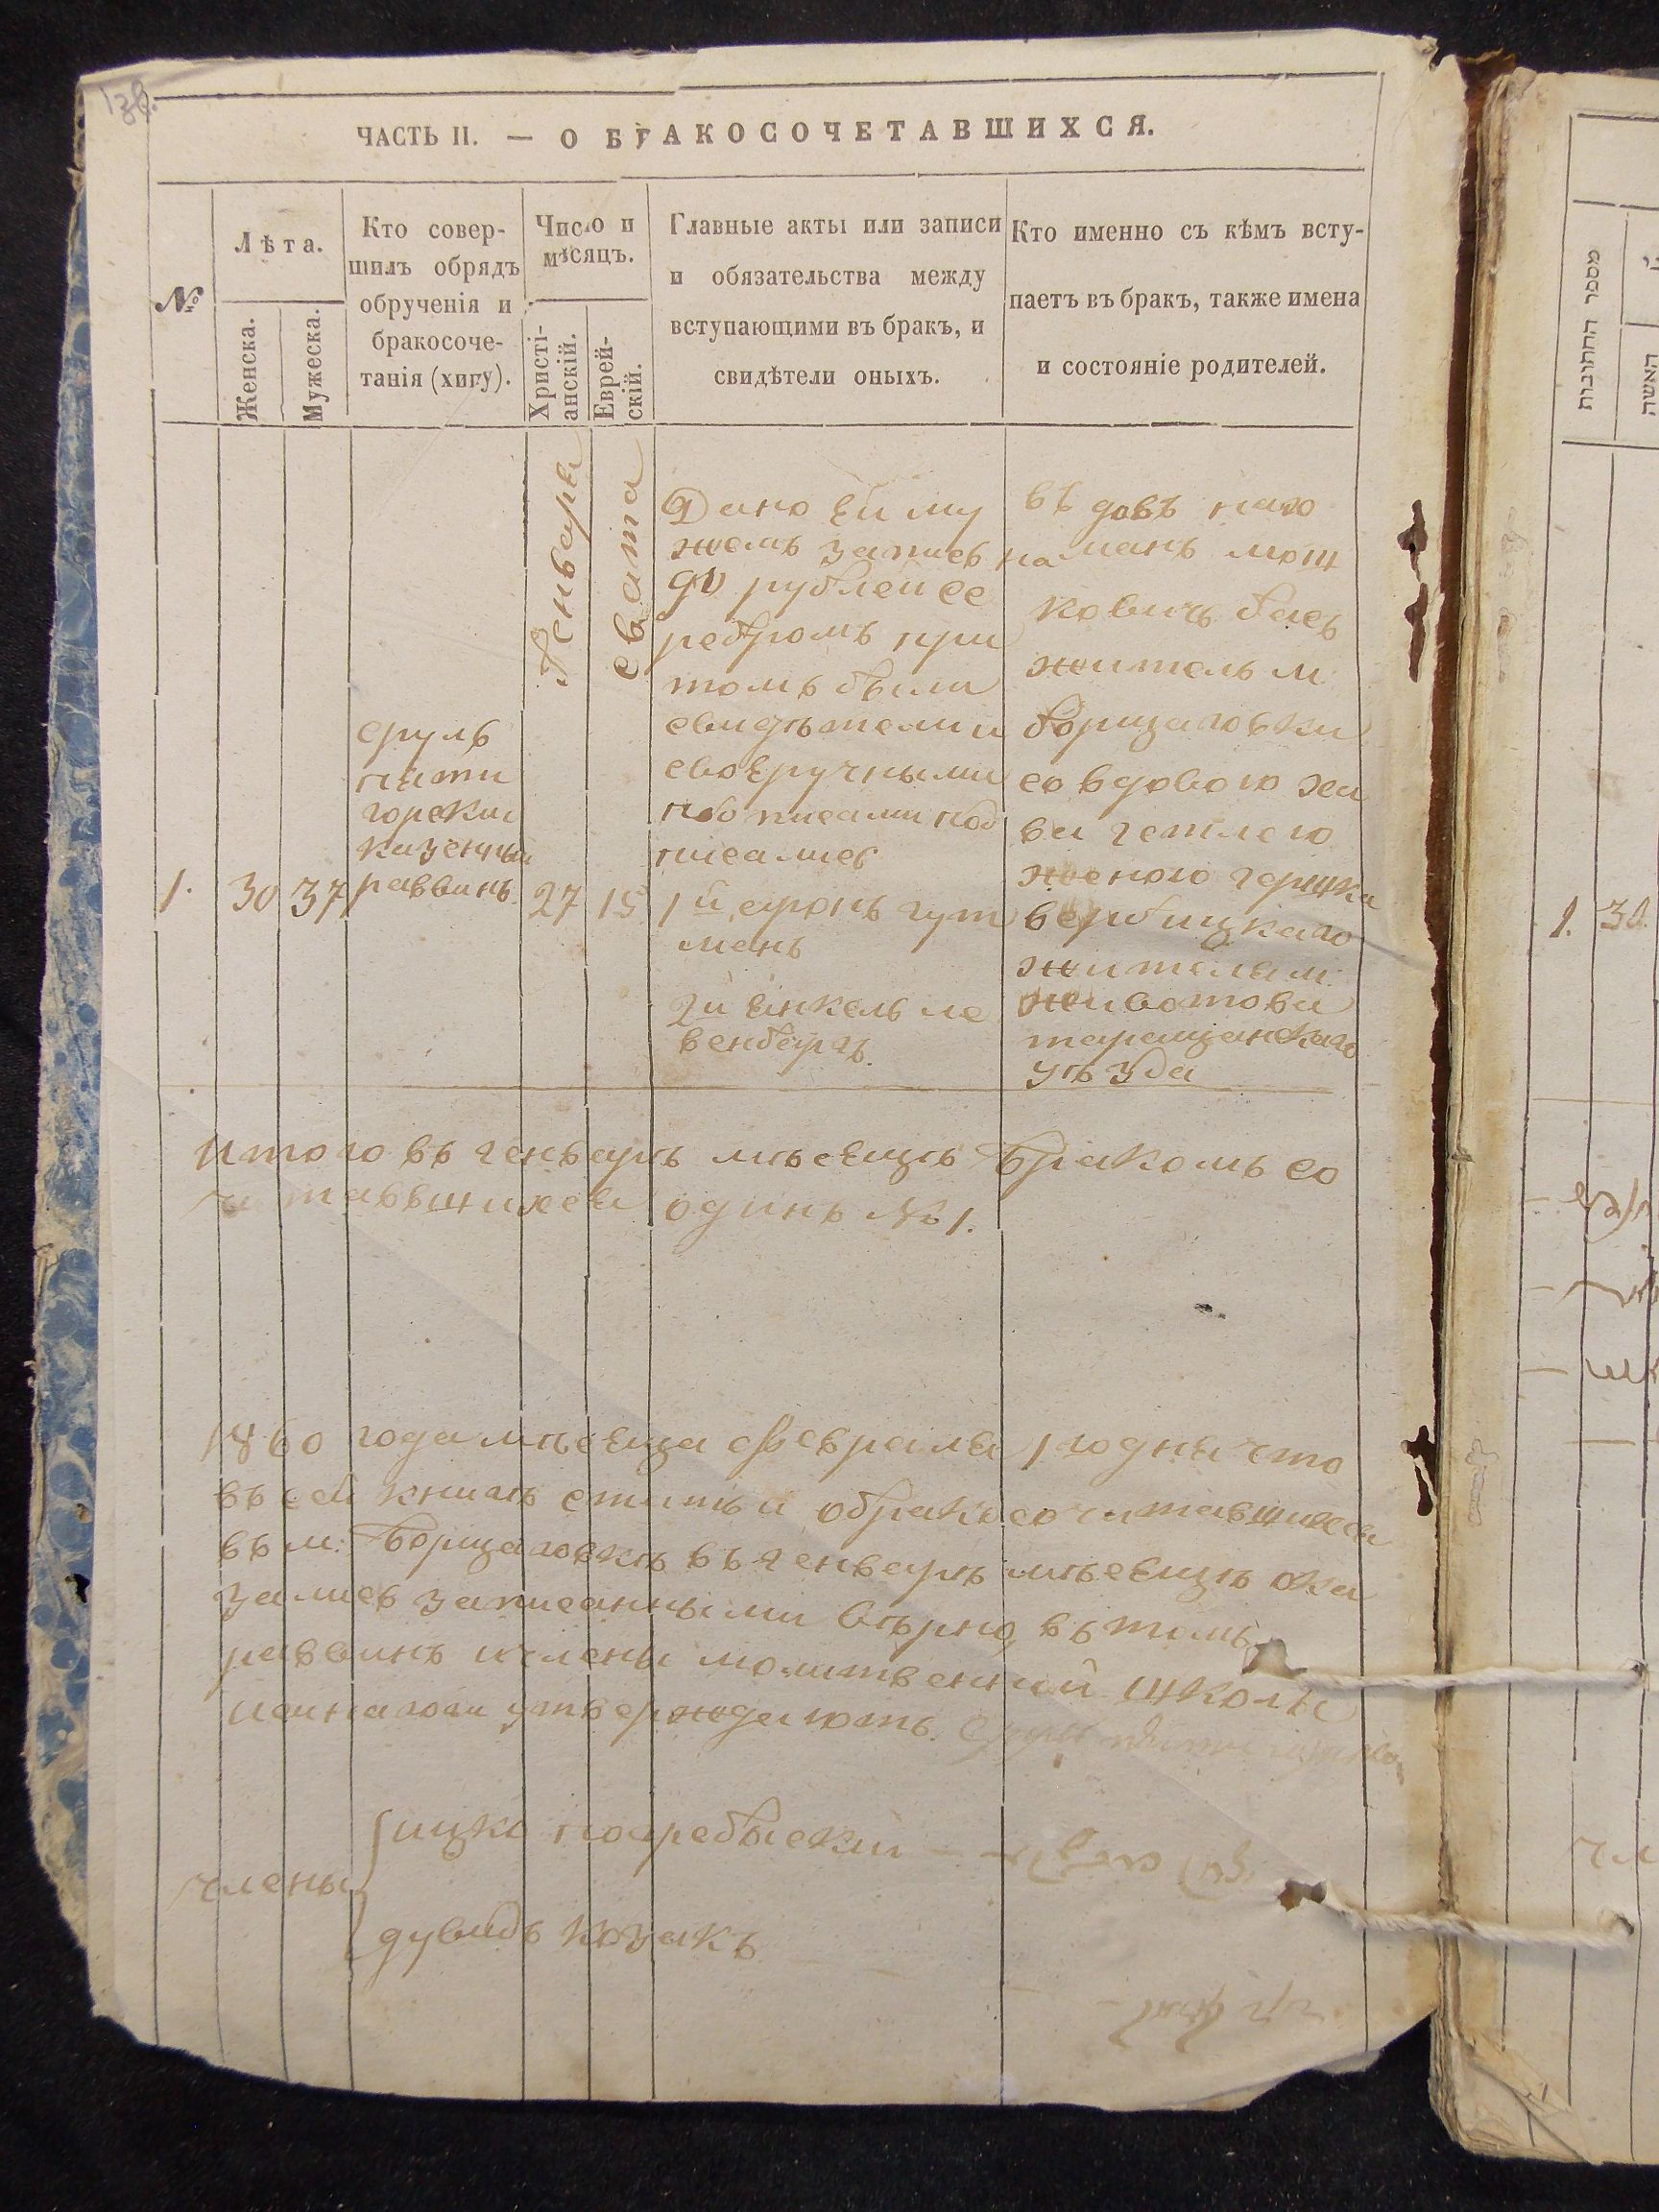 ЧАСТЬ II. — О БРАКОСОЧЕТАВШИХСЯ.
№
Лѣта.
Женска.
Мужеска.
Кто совер-
шилъ обрядъ
обрученія и
бракосоче-
танія (хипу).
Число и
мѣсяцъ.
Христі-
анскій.
Еврей-
скій.
Главные акты или записи
и обязательства между
вступающими въ бракъ, и
свидѣтели оныхъ.
Кто именно съ кѣмъ всту-
паетъ въ бракъ, также имена
и состояніе родителей.
1.
30
37
сруль
пяти
горски
казенный
раввинъ
Генваря
27
свата
15
Дано ей му
жемъ запись на
рублей се
ребромъ при
томъ были
свидѣтели и
своеручными
подписами под
писались
1й сронъ гут
манъ
2й енкель ле
венбергъ.
въ довъ
манъ мош
ковичъ
житель м:
борщаговки
со вдовою ха
ва
женою гершка
вербицкаго
жителем
животова
таращанскаго
уѣзда
итого въ генварѣ мѣсецѣ бракомъ со
читавшихся одинъ № 1.
1860 года мѣсеца февраля 1го дня что
въ сей книгѣ статьи обракосочитавшихся
въ м: борщаговкѣ въ генварѣ мѣсецѣ ока
зались записанными вѣрно, въ томъ
раввинъ ичлены молитвенной школы
утверждаютъ.
члены
ицко погребыскій
дувидъ козакъ
מספר החתונות
האשה
1.
30.